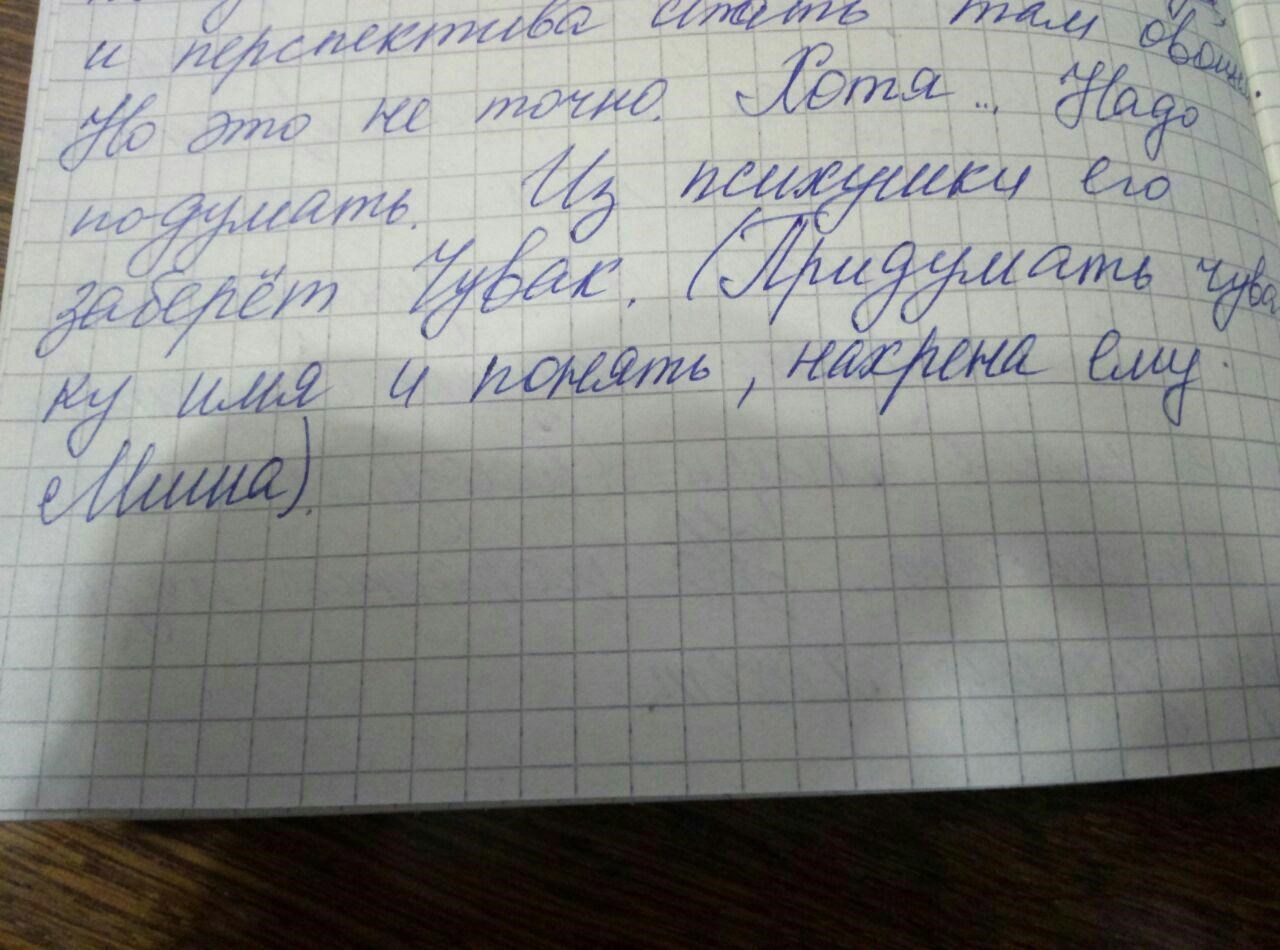 и перспектива стать там овощем.
Но это не точно. Хотя... Надо
подумать. Из психушки его
заберёт Чувак. (Придумать чува
ку имя и понять, нахрена ему
Миша).